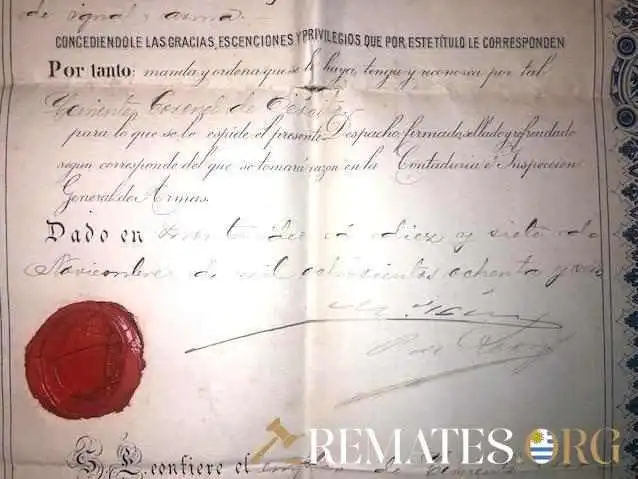 de igual arma.
CONCEDIENDOLE LAS GRACIAS, ESCENCIONES Y PRIVILEGIOS QUE POR ESTE TÍTULO LE CORRESPONDEN
Por tanto: manda y ordena que se le haya, tenga y reconosca por tal
Teniente Coronel de
para lo que se le espide el presente Despacho, firmado, sellado y refrendado
segun corresponde del que se tomará razon en la Contaduria é Inspeccion
General de Armas.
Dado en Montevideo á diez y siete de
Noviembre de mil ochocientos ochenta y
REMATES.ORG
S. E. confiere el de